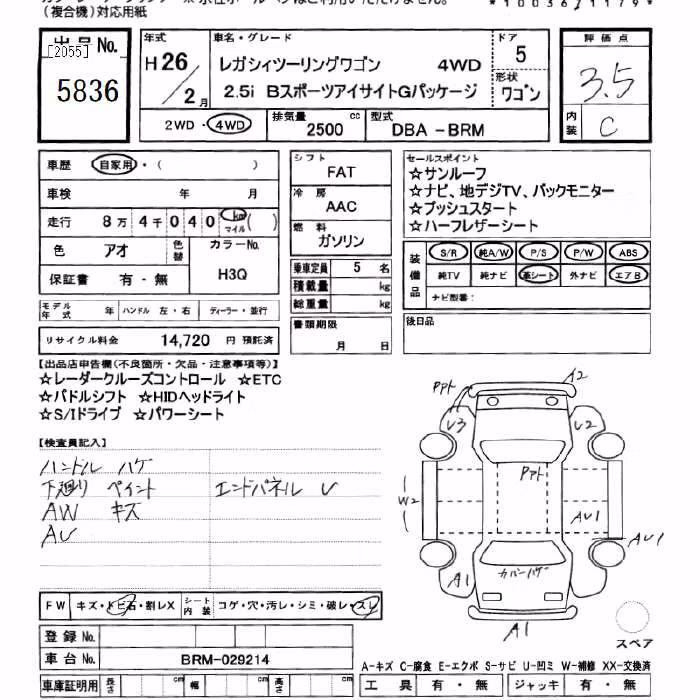 (複合機)対応用紙
*1003621179*
出品No.
[2055]
5836
年式
H26/2月
車名・グレード
レガシィツーリングワゴン 4WD
2.5i BスポーツアイサイトGパッケージ
ドア
5
形状
ワゴン
評価点
3.5
内装
C
2WD・4WD
排気量 2500 cc
型式 DBA-BRM
車歴 自家用・( )
車検 年 月
走行 8万4千040 km マイル ( )
色 アオ 色替 カラーNo. H3Q
保証書 有・無
モデル年式 年 ハンドル 左・右 ディーラー・並行
リサイクル料金 14,720 円 預託済
シフト
FAT
冷房
AAC
燃料
ガソリン
乗車定員 5 名
積載量 kg
総重量 kg
書類期限
月 日
セールスポイント
☆サンルーフ
☆ナビ、地デジTV、バックモニター
☆プッシュスタート
☆ハーフレザーシート
装備品
S/R 純A/W P/S P/W ABS
純TV 純ナビ 革シート 外ナビ エアB
ナビ型番:
後日品
【出品店申告欄(不良箇所・欠品・注意事項等)】
☆レーダークルーズコントロール ☆ETC
☆パドルシフト ☆HIDヘッドライト
☆S/Iドライブ ☆パワーシート
【検査員記入】
ハンドル ハゲ
下廻り ペイント エンドパネル U
AW キズ
AU
A2
PPト
U3
U2
PPト
W2
AU1
AU1
カバーハゲ
A1
A1
スペア
FW キズ・トビ石・割レX シート内装 コゲ・穴・汚レ・シミ・破レ・スレ
登録No.
車台No. BRM-029214
車庫証明用 長さ cm 幅 cm 高さ cm
A-キズ C-腐食 E-エクボ S-サビ U-凹ミ W-補修 XX-交換済
工具 有・無 ジャッキ 有・無